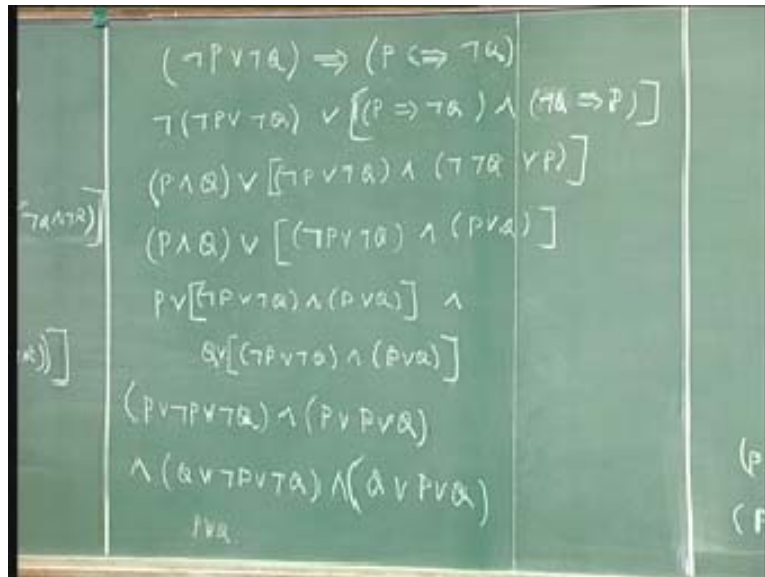 (¬P∨¬Q) ⇒ (P ⇔ ¬Q)
¬(¬P∨¬Q) ∨ [(P ⇒ ¬Q) ∧ (¬Q ⇒ P)]
(P∧Q) ∨ [(¬P∨¬Q) ∧ (¬¬Q ∨P)]
(P∧Q) ∨ [(¬P∨¬Q) ∧ (P∨Q)]
P∨[(¬P∨¬Q)∧(P∨Q)] ∧
Q∨[(¬P∨¬Q) ∧ (P∨Q)]
(P∨¬P∨¬Q) ∧ (P∨P∨Q)
∧ (Q∨¬P∨¬Q) ∧ (Q∨P∨Q)
P∨Q
(P
(P